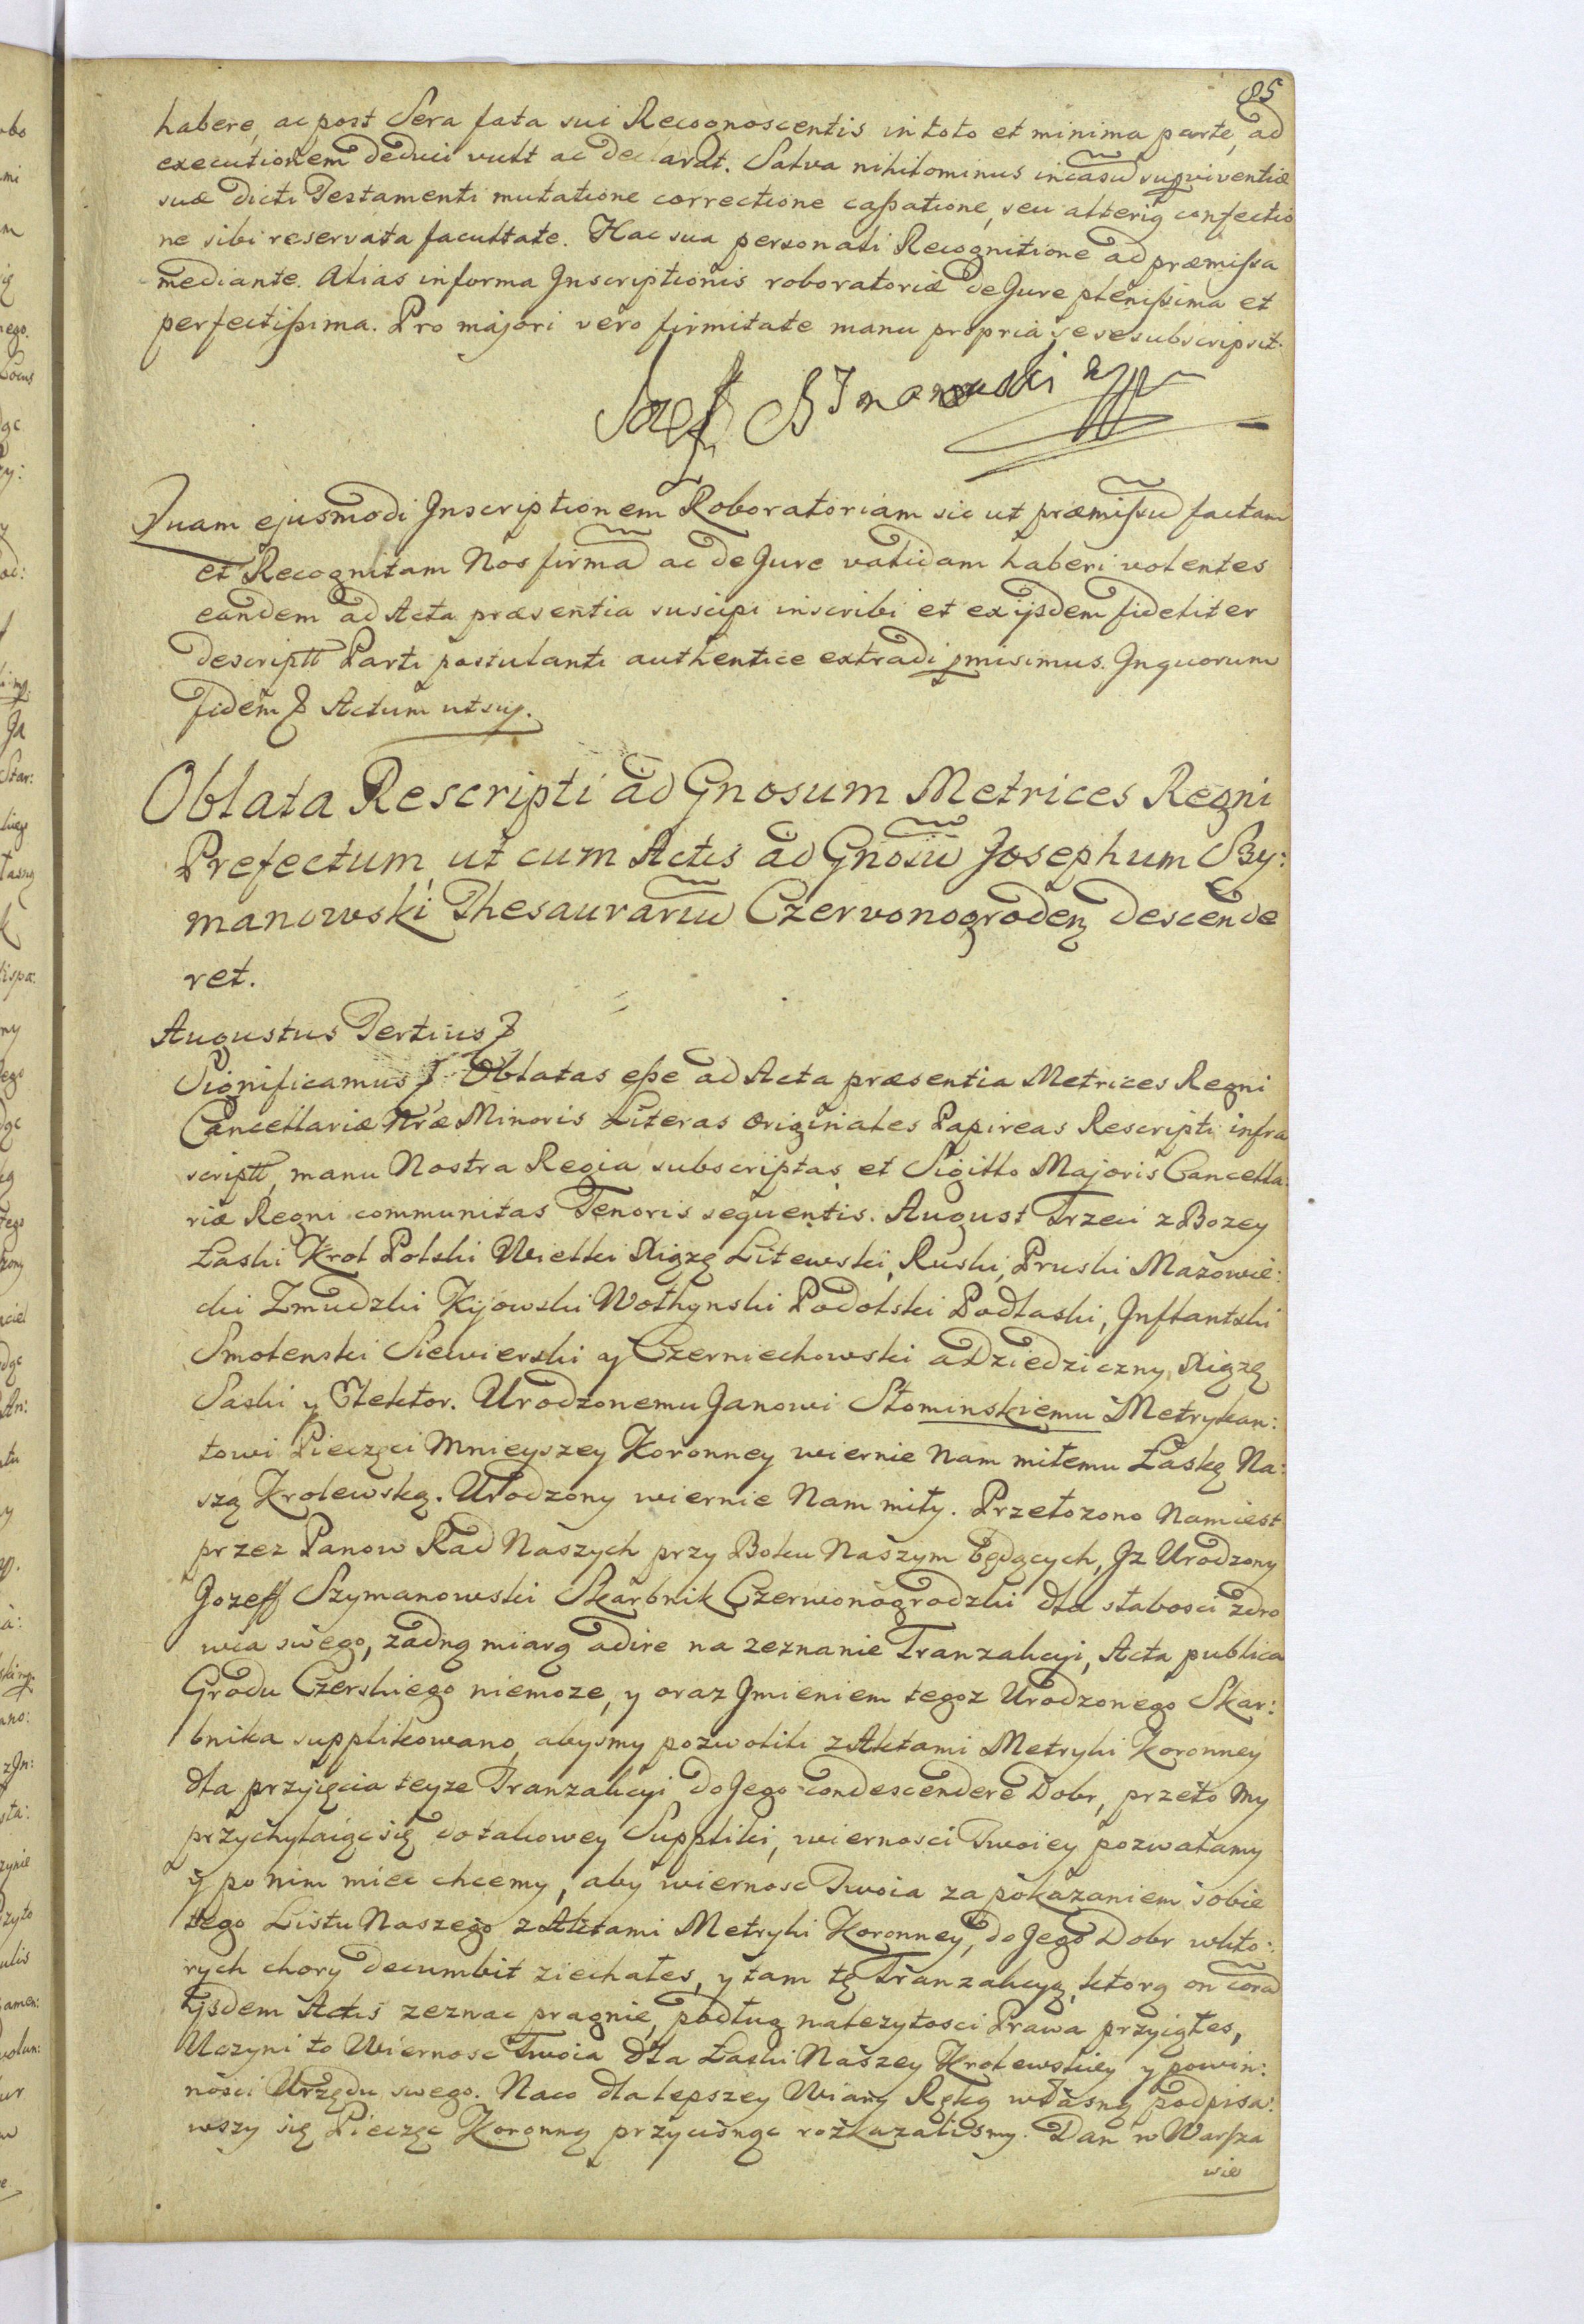 85
habere, ac post Sera fata sui Recognoscentis in toto et minima parte, ad
executionem deduci vult ac declarat. Salva nihilominus in casu supviventiæ
suæ dicti Testamenti mutatione correctione caßatione, seu alterig confectio
ne sibi reservata facultate. Hac sua personali Recognitione ad præmißa
mediante. Alias in forma Jnscriptionis roboratoriæ de Jure plenißima et
perfectißima. Pro majori vero firmitate manu propria sese subscripsit.
Jozeff
Quam ejusmodi Jnscriptionem Roboratoriam sic ut præmißu factam
et Recognitam Nos firma ac de Jure validam haberi volentes
eandem ad Acta præsentia suscipi inscribi et ex ijsdem fideliter
descriptt Parti postulanti authentice extradi pmisimus. Jnquorum
fidem Actum ut sup.
Oblata Rescripti ad Gnosum Metrices Regni
Prefectum ut cum Actis ad Gnosu Josephum Szy:
manowski Thesaurariu Czervonogroden descende
ret.
Augustus Tertius
Significamus Oblatas eße ad Acta præsentia Metrices Regni
Cancellariæ Nræ Minoris Literas originales Papireas Rescripti infra
scriptt, manu Nostra Regia subscriptas et Sigillo Majoris Cancella:
riæ Regni communitas Tenoris sequentis. August Trzeci z Bozey
Łaski Krol Polski Wielki Xiąze Litewski, Ruski, Pruski Mazowie:
cki Zmudzki Kijowski Wołhynski Podolski Podlaski, Jnflantski
Smolenski Siewierski y Czerniechowski a Dziedziczny Xiąze
Saski y Elektor. Urodzonemu Janowi Słominskiemu Metrykan:
towi Pieczęci Mnieyszey Koronney wiernie Nam miłemu Łaskę Na:
szą Krolewską. Urodzony wiernie Nam miły. Przełozono Nam iest
przez Panow Rad Naszych przy Boku Naszym będących, Jz Urodzony
Jozeff Szymanowski Skarbnik Czerwonogrodzki dla słabosci zdro
wia swego, zadną miarą adire na zeznanie Tranzakcyi, Acta publica
Grodu Czerskiego niemoze, y oraz Jmieniem tegoz Urodzonego Skar:
bnika supplikowano, abysmy pozwolili z Aktami Metryki Koronney
dla przyięcia teyze Tranzakcyi do Jego condescendere Dobr, przeto My
przychylaiąc się do takowey Suppliki, wiernosci Twoiey pozwalamy
y po nim miec chcemy, aby wiernosc Twoia za pokazaniem sobie
tego Listu Naszego z Aktami Metryki Koronney, do Jego Dobr wkto:
rych chory decumbit ziechałes, y tam tę Tranzakcyą, ktorą on cora
ijsdem Actis zeznac pragnie, podług nalezytosci Prawa przyiąłes,
Uczyni to Wiernosc Twoia dla Łaski Naszey Krolewskiey y powin:
nosci Urzędu swego. Naco dla lepszey Wiary Ręką własną podpisa:
wszy się Pieczęc Koronną przycisnąc rozkazalismy. Dan w Warßza
wie